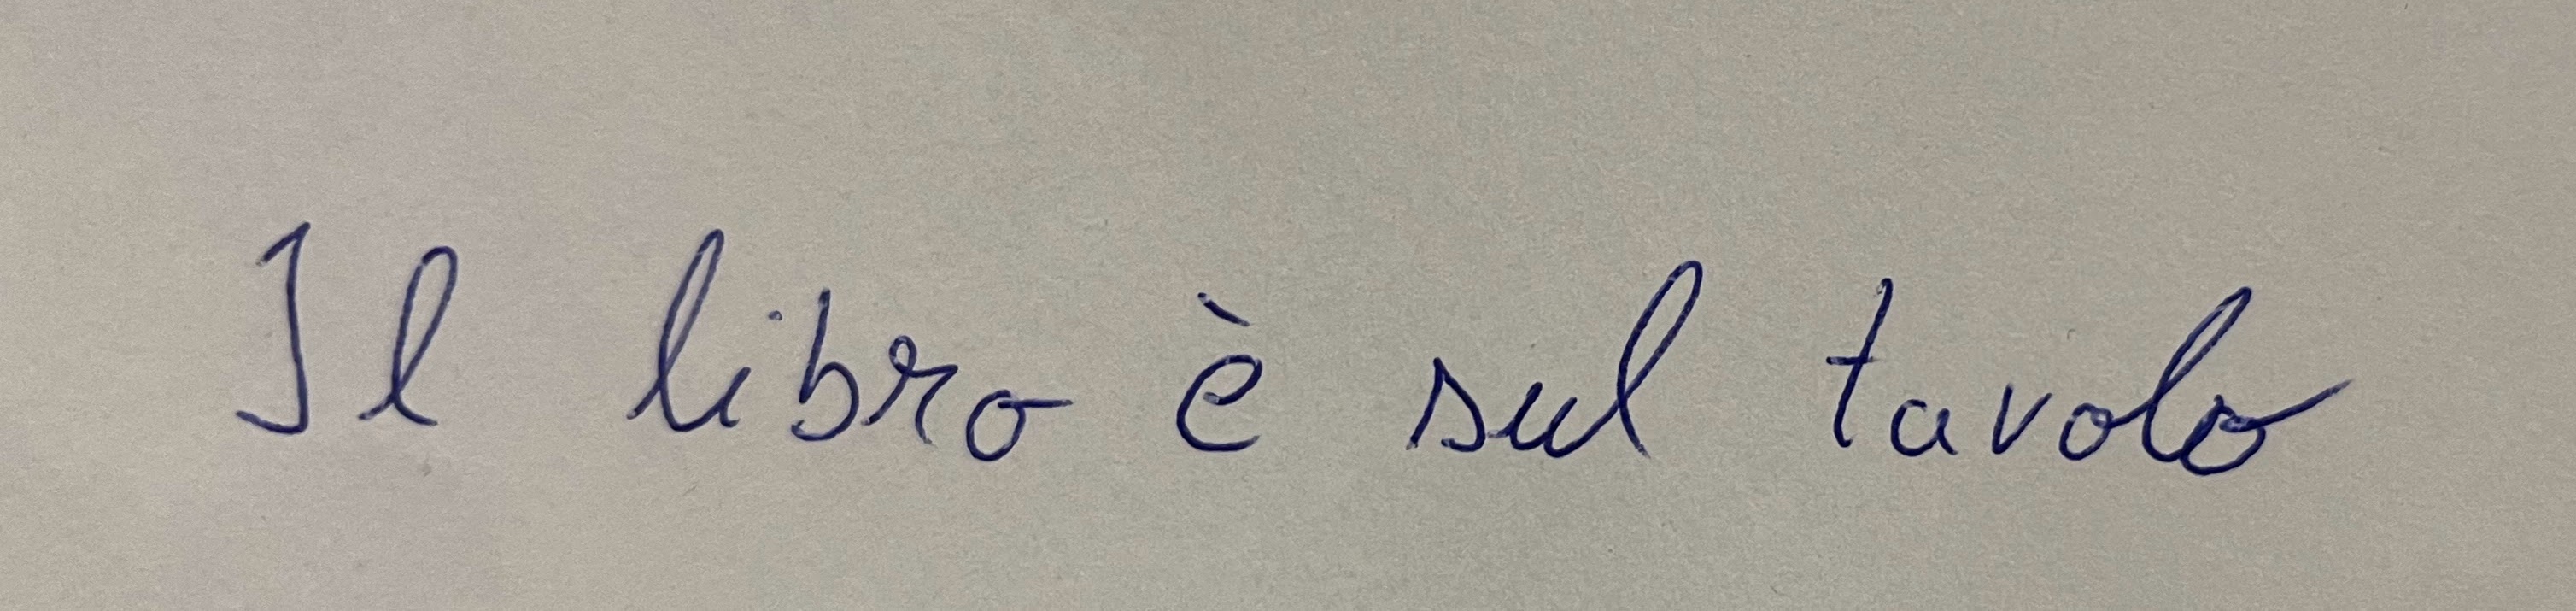 Il libro è sul tavolo